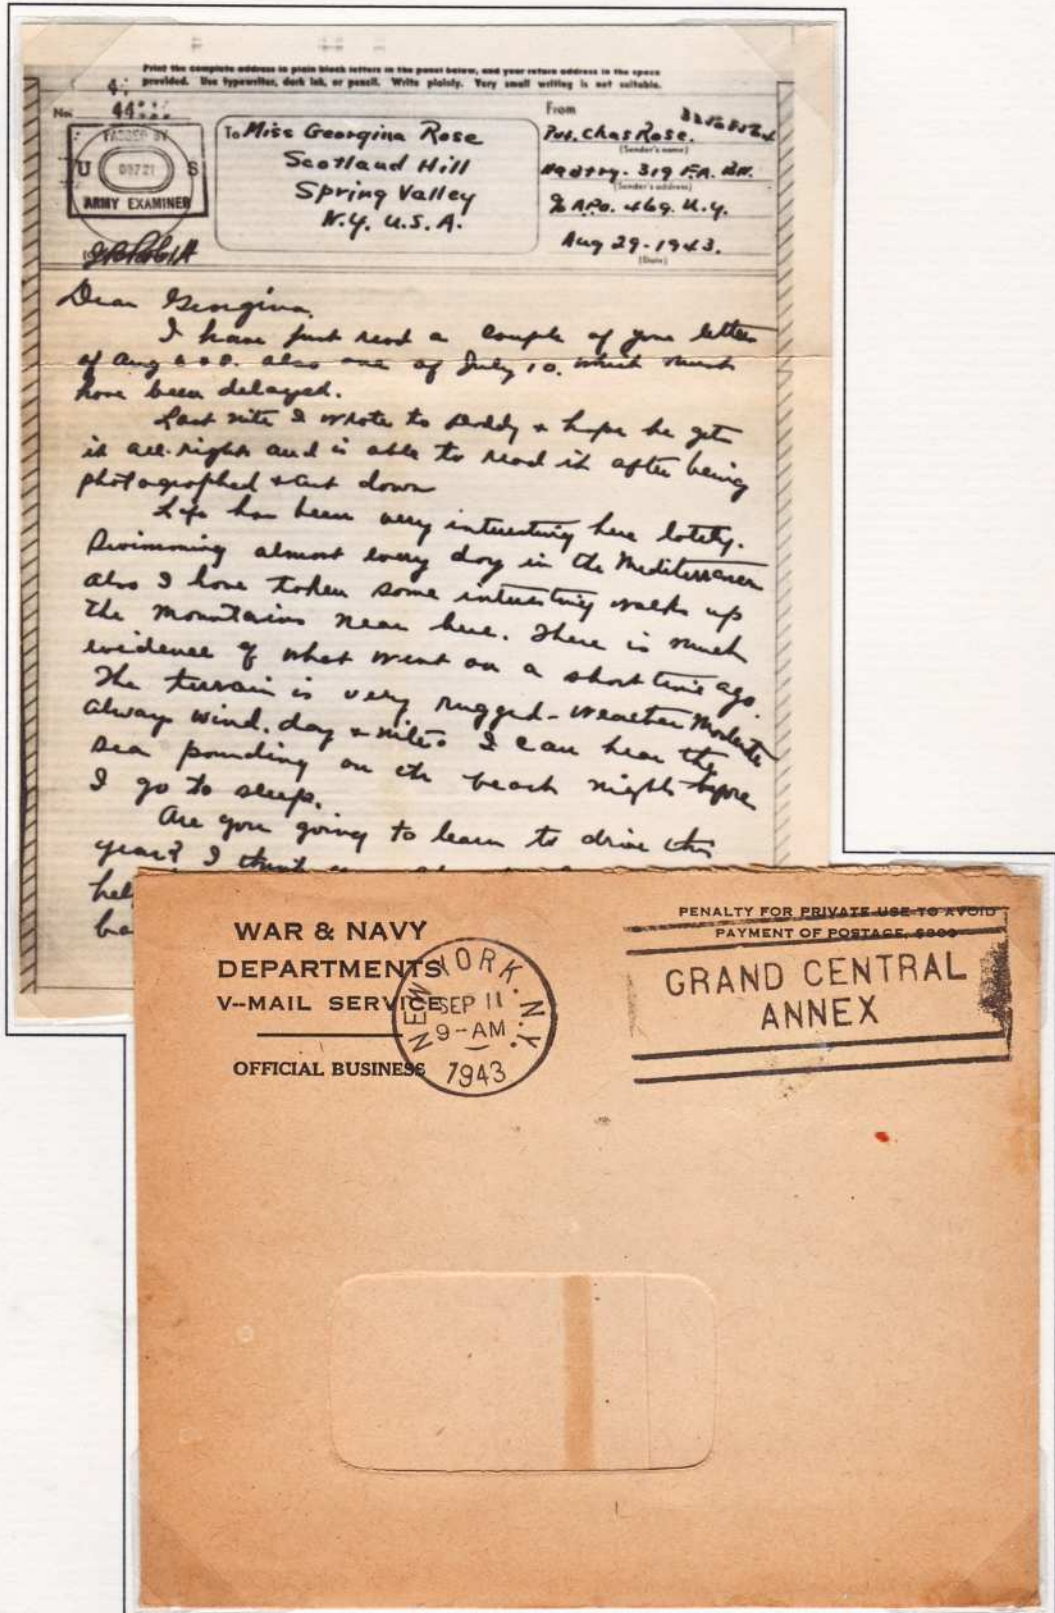 Print the complete address in plain block letters in the panel below, and your return address in the space
provided. Use typewriter, dark ink, or pencil. Write plainly. Very small writing is not suitable.
No.
44
PASSED BY
U S
ARMY EXAMINER
To Miss Georgina Rose
Scotland Hill
Spring Valley
N.Y. U.S.A.
From
Pvt. Chas Rose.
(Sender's name)
Hq Btry. 319 F.A. BN.
(Sender's address)
% APO. 469. N.Y.
Aug 29-1943.
(Date)
Dear Georgina,
I have just read a couple of your letters
of Aug also one of July 10. which must
have been delayed.
Last nite I wrote to Daddy & hope he gets
it all-right and is able to read it after being
photographed & cut down
Life has been very interesting here lately.
Swimming almost every day in the Mediterranean
also I have taken some interesting walks up
the mountains near here. There is much
evidence of what went on a short time ago.
The terrain is very rugged - weather Moderate
always wind. day & nite. I can hear the
sea pounding on the beach nights before
I go to sleep.
Are you going to learn to drive this
year? I think
hel
ba
WAR & NAVY
DEPARTMENTS
V--MAIL SERVICE
OFFICIAL BUSINESS
NEW YORK, N.Y.
SEP 11
9-AM
1943
PENALTY FOR PRIVATE USE TO AVOID
PAYMENT OF POSTAGE, $300
GRAND CENTRAL
ANNEX